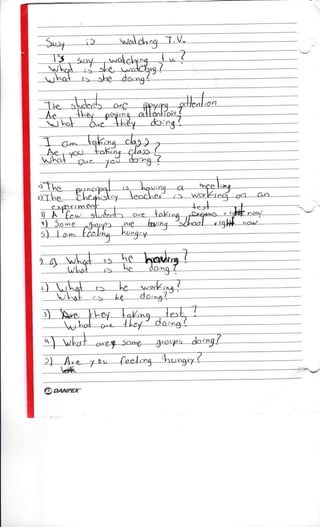 Susy is Walching T.V.
Is Susy wolchyng t.v.?
What is she watching?
What is she doing?
The students are paying attention
Are they paying attention?
What are they doing?
I am taking class
Are you taking class?
What are you doing?
The principal is having a meeting
2) The Chemistry teacher is working on an
experiment test
3) A few students are taking exams right now
4) Some groups are leaving school right now
5) I am feeling hungry
a) What is he having?
What is he doing?
2) What is he working?
What is he doing?
3) Are they taking test?
What are they doing?
4) What are some groups doing?
5) Are you feeling hungry?
DANPEX